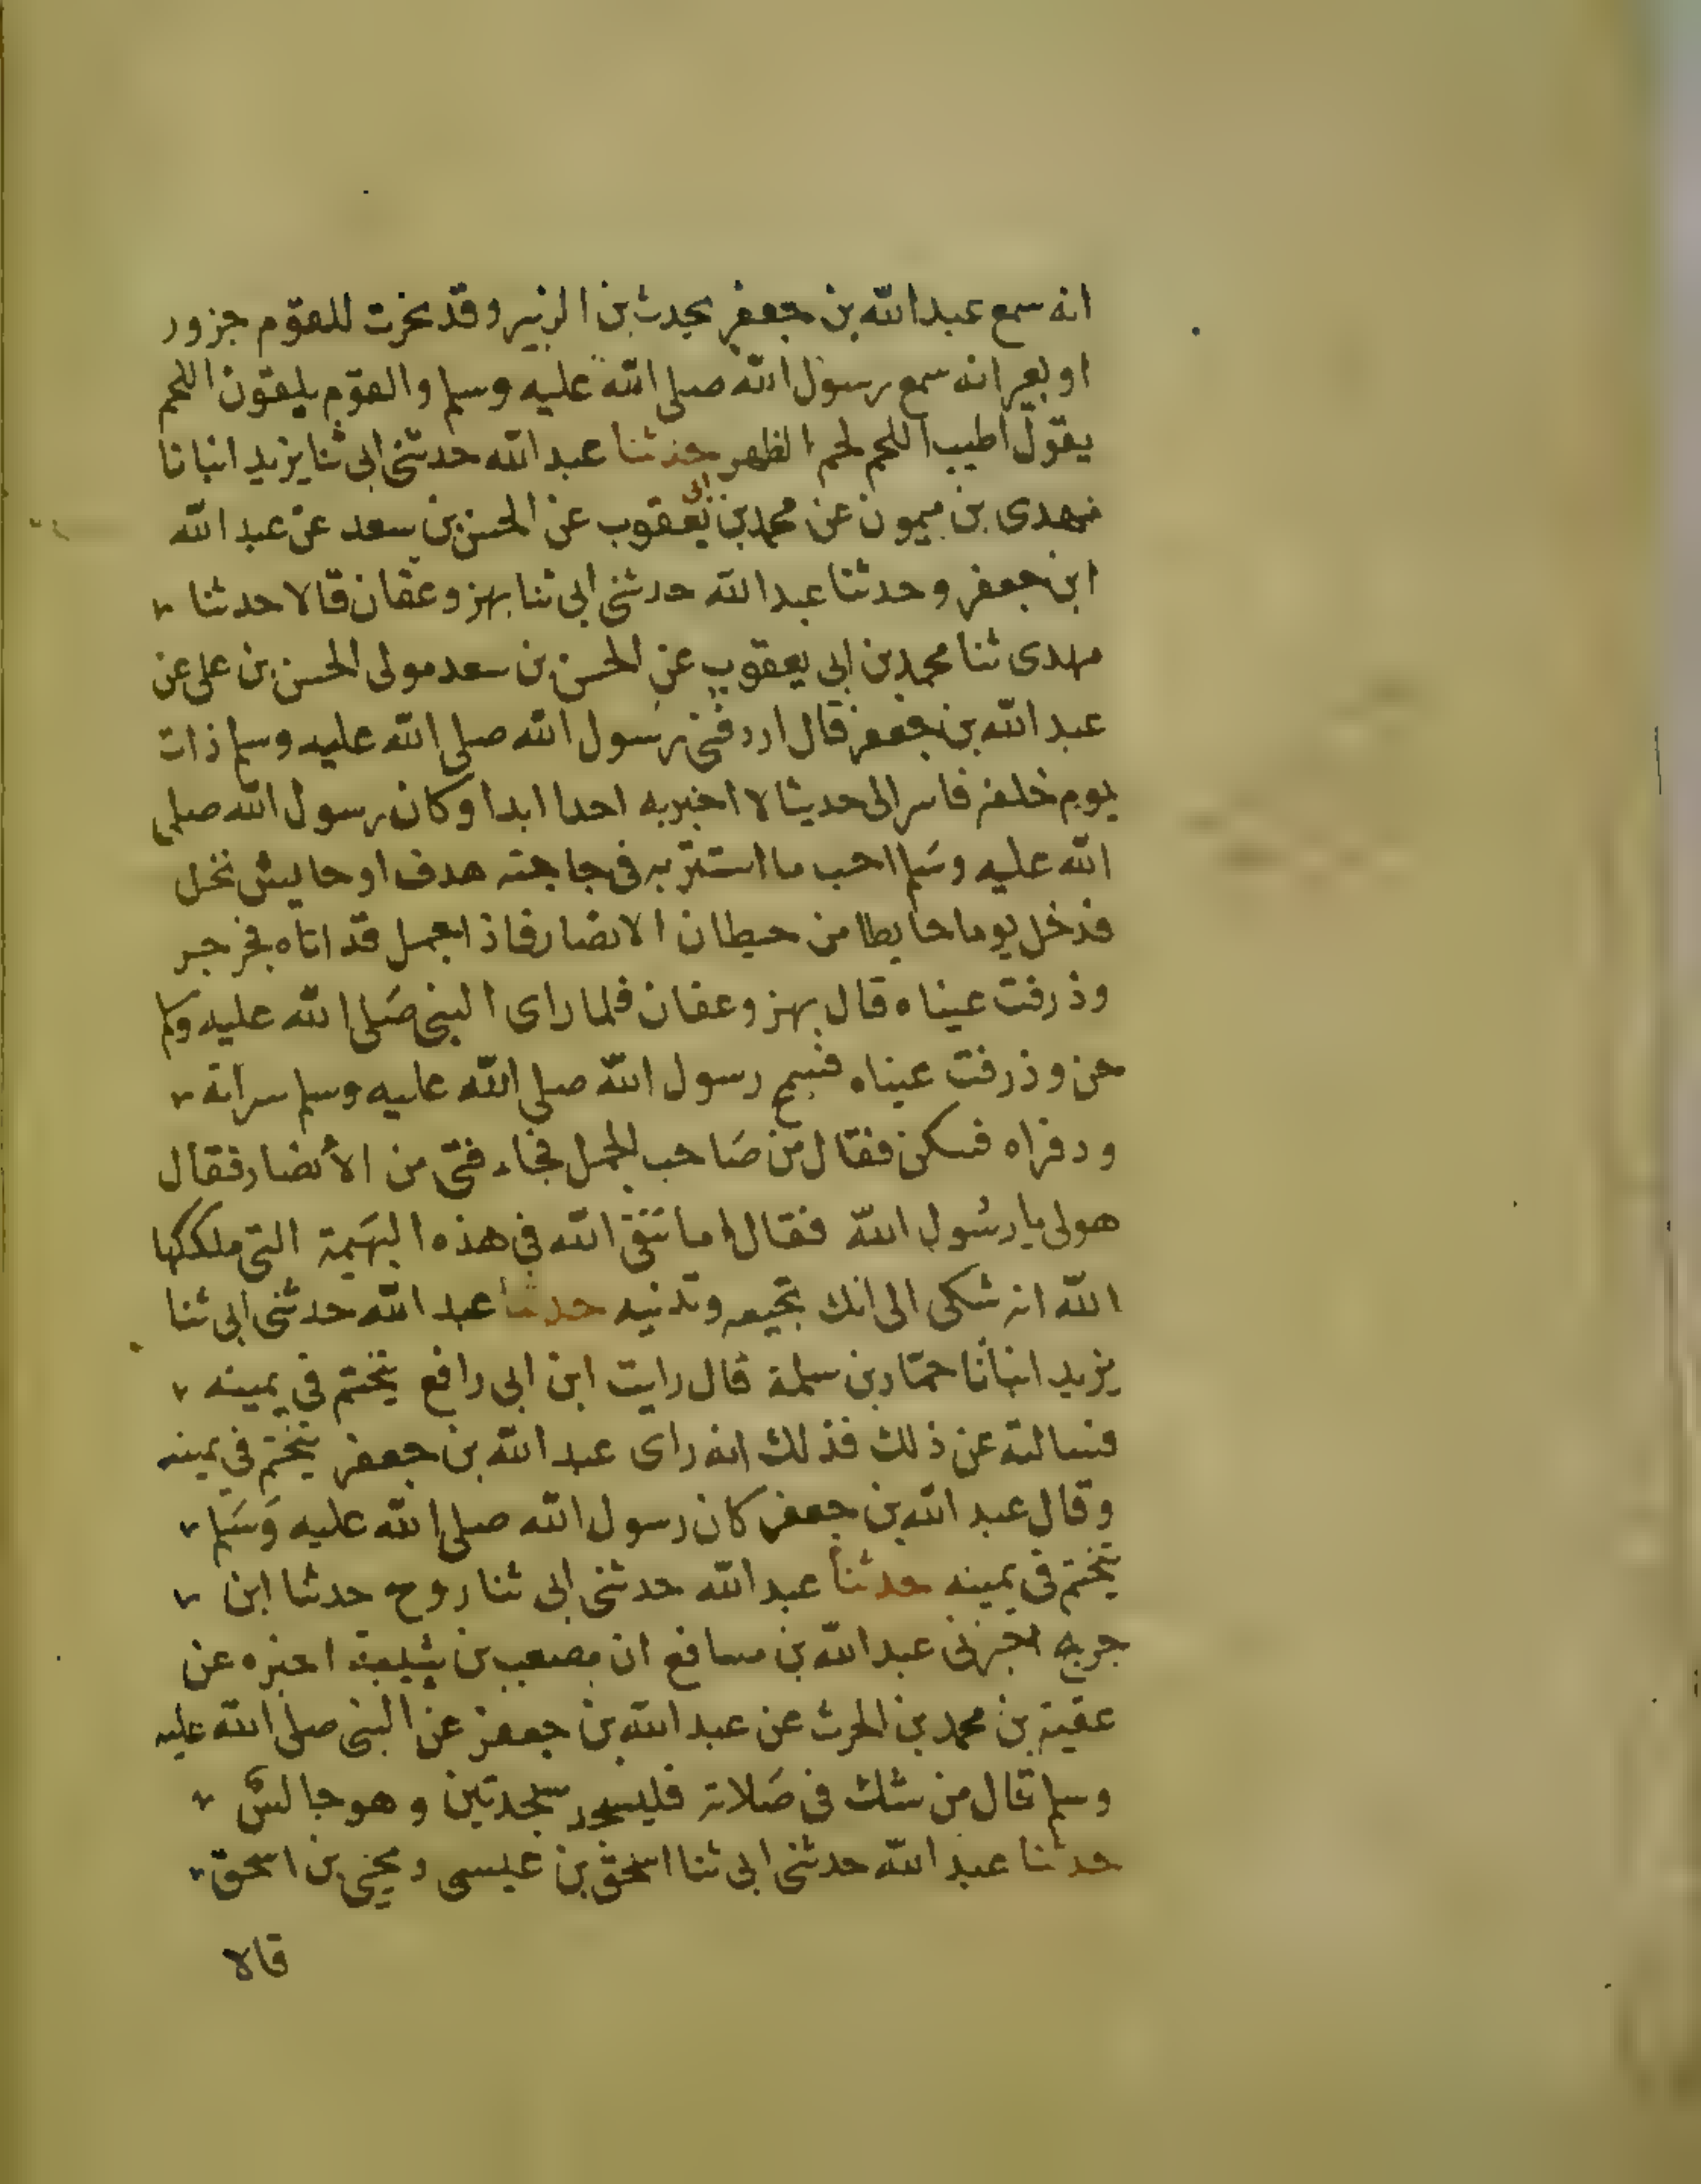 انه سمع عبد الله بن جعفر يحدث بن الزبير وقد نحرت للقوم جزور
او بعير انه سمع رسول الله صلى الله عليه وسلم والقوم يلقون اللحم
يقول اطيب اللحم لحم الظهر حدثنا عبد الله حدثنى ابى ثنا يزيد انبانا
مهدى بن ميمون عن محمد بن ابى يعقوب عن الحسن بن سعد عن عبد الله
ابن جعفر وحدثنا عبد الله حدثنى ابى ثنا بهز وعفان قالا حدثنا
مهدى ثنا محمد بن ابى يعقوب عن الحسن بن سعد مولى الحسن بن على عن
عبد الله بن جعفر قال اردفنى رسول الله صلى الله عليه وسلم ذات
يوم خلفه فاسر الى حديثا لا اخبر به احدا ابدا وكان رسول الله صلى
الله عليه وسلم احب ما استتر به فى حاجته هدف او حايش نخل
فدخل يوما حايطا من حيطان الانصار فاذا جمل قد اتاه فجرجر
وذرفت عيناه قال بهز وعفان فلما راى النبى صلى الله عليه وسلم
حن وذرفت عيناه فمسح رسول الله صلى الله عليه وسلم سراته
ودفراه فسكن فقال من صاحب الجمل فجاء فتى من الأنصار فقال
هو لى يا رسول الله فقال اما تتقى الله فى هذه البهيمة التى ملككها
الله انه شكى الى انك تجيعه وتدئبه حدثنا عبد الله حدثنى ابى ثنا
يزيد انبانا حماد بن سلمة قال رايت ابن ابى رافع يتختم فى يمينه
فسالته عن ذلك فذلك انه راى عبد الله بن جعفر يتختم فى يمينه
وقال عبد الله بن جعفر كان رسول الله صلى الله عليه وسلم
يتختم فى يمينه حدثنا عبد الله حدثنى ابى ثنا روح حدثنا ابن
جريج اخبرنى عبد الله بن مسافع ان مصعب بن شيبة اخبره عن
عقبة بن محمد بن الحرث عن عبد الله بن جعفر عن النبى صلى الله عليه
وسلم قال من شك فى صلاته فليسجد سجدتين وهو جالس
حدثنا عبد الله حدثنى ابى ثنا اسحق بن عيسى ويحيى بن اسحق
قالا